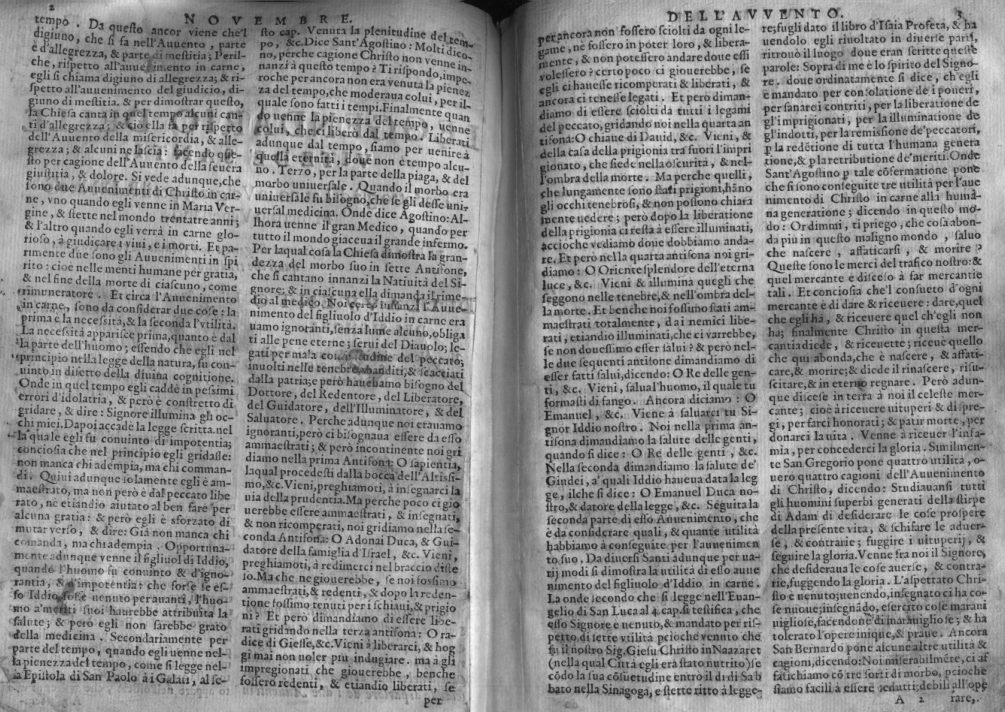 2
NOVEMBRE.
tempo. Da questo ancor viene che'l
digiuno, che si fa nell'Auuento, parte
è d'allegrezza, & parte di mestitia; Peril-
che, rispetto all'auuenimento in carne,
egli si chiama digiuno di allegrezza; & ri-
spetto all'auuenimento del giudicio, di-
giuno di mestitia. & per dimostrar questo,
la Chiesa canta in quel tempo alcuni can-
ti d'allegrezza; & ciò ella fa per rispetto
dell'Auuento della misericordia, & alle-
grezza; & alcuni ne lascia: facendo que-
sto per cagione dell'Auuento della seuera
giustitia, & dolore. Si vede adunque, che
sono due Auuenimenti di Christo, in car-
ne, vno quando egli venne in Maria Ver-
gine, & stette nel mondo trentatre anni;
& l'altro quando egli verrà in carne glo-
rioso, à giudicare i viui, e i morti. Et pa-
rimente due sono gli Auuenimenti in spi
rito: cioe nelle menti humane per gratia,
& nel fine della morte di ciascuno, come
rimuneratore. Et circa l'Auuenimento
in carne, sono da considerar due cose: la
prima è la necessità, & la seconda l'vtilità.
La necessità apparice prima, quanto è dal
la parte dell'huomo; essendo che egli nel
principio nella legge della natura, fu con-
uinto in difetto della diuina cognitione.
Onde in quel tempo egli cadde in pessimi
errori d'idolatria, & però è constretto di
gridare, & dire: Signore illumina gli oc-
chi miei. Dapoi accade la legge scritta, nel
la quale egli fu conuinto di impotentia;
conciosia che nel principio egli gridasse:
non manca chi adempia, ma chi comman-
di. Quiui adunque solamente egli è am-
maestrato, ma non però è dal peccato libe
rato, ne etiandio aiutato al ben fare per
alcuna gratia: & però egli è sforzato di
mutar verso, & dire: Già non manca chi
comanda, ma chi adempia. Opportuna-
mente adunque venne il figliuol di Iddio,
quando l'huomo fu conuinto & d'igno-
rantia, & d'impotentia: che forse se es-
so Iddio fosse venuto per auanti, l'huo-
mo a' meriti suoi haurebbe attribuita la
salute; & però egli non sarebbe grato
della medicina. Secondariamente per
parte del tempo, quando egli uenne nel-
la pienezza del tempo, come si legge nel-
la Epistola di San Paolo à i Galati, al se-
sto cap. Venuta la plenitudine del tem-
po, &c. Dice Sant'Agostino: Molti dico-
no, perche cagione Christo non venne in-
nanzi à questo tempo? Ti rispondo, impe-
roche per ancora non era venuta la pienez
za del tempo, che moderaua colui, per il-
quale sono fatti i tempi. Finalmente quan
do uenne la pienezza del tempo, uenne
colui, che ci liberò dal tempo. Liberati
adunque dal tempo, siamo per uenire à
quella eternità, doue non è tempo alcu-
no. Terzo, per la parte della piaga, & del
morbo uniuersale. Quando il morbo era
uniuersale fu bisogno, che se gli desse uni-
uersal medicina. Onde dice Agostino: Al-
lhora uenne il gran Medico, quando per
tutto il mondo giaceua il grande infermo.
Per laqual cosa la Chiesa dimostra la gran-
dezza del morbo suo in sette Antifone,
che si cantino innanzi la Natiuità del Si-
gnore; & in ciascuna ella dimanda il rime-
dio al medico. Noi certo innanzi l'Auue-
nimento del figliuolo d'Iddio in carne era
uamo ignoranti, senza lume alcuno, obliga
ti alle pene eterne; serui del Diauolo; le-
gati per mala consuetudine del peccato;
inuolti nelle tenebre, banditi, & scacciati
dalla patria; e però haueuamo bisogno del
Dottore, del Redentore, del Liberatore,
del Guidatore, dell'Illuminatore, & del
Saluatore. Perche adunque noi erauamo
ignoranti, però ci bisognaua essere da esso
ammaestrati; & però incontinente noi gri
diamo nella prima Antifona: O sapientia,
laqual procedesti dalla bocca dell'Altissi-
mo, &c. Vieni, preghiamoti, à insegnarci la
uia della prudentia. Ma perche poco ci gio
uerebbe essere ammaestrati, & insegnati,
& non ricomperati, noi gridiamo nella se-
conda Antifona: O Adonai Duca, & Gui-
datore della famiglia d'Israel, &c. Vieni,
preghiamoti, à redimerci nel braccio diste
so. Ma che ne giouerebbe, se noi fossimo
ammaestrati, & redenti, & dopo la reden-
tione fossimo tenuti per ischiaui, & prigio
ni? Et però dimandiamo di essere libe-
rati gridando nella terza antifona: O ra-
dice di Giesse, &c. Vieni à liberarci, & hog
gi mai non uoler più indugiare. ma à gli
impregionati che giouerebbe, benche
fossero redenti, & etiandio liberati, se
per
DELL'AVVENTO.
3
per ancora non fossero sciolti da ogni le-
game, ne fossero in poter loro, & libera-
mente, & non potessero andare doue essi
volessero? certo poco ci giouerebbe, se
egli ci hauesse ricomperati & liberati, &
ancora ci tenesse legati. Et però diman-
diamo di essere sciolti da tutti i legami
del peccato, gridando noi nella quarta an
tifona: O chiaue di Dauid, &c. Vieni, &
della casa della prigionia tra' fuori l'impri
gionato, che siede nella oscurità, & nel-
l'ombra della morte. Ma perche quelli,
che lungamente sono stati prigioni, hãno
gli occhi tenebrosi, & non possono chiara
mente uedere; però dopo la liberatione
della prigionia ci resta à essere illuminati,
accioche vediamo doue dobbiamo anda-
re. Et però nella quarta antifona noi gri-
diamo: O Oriente splendore dell'eterna
luce, &c. Vieni & illumina quegli che
seggono nelle tenebre, & nell'ombra del-
la morte. Et benche noi fossimo stati am-
maestrati totalmente, da i nemici libe-
rati, etiandio illuminati, che ci varrebbe,
se non douessimo esser salui? & però nel-
le due sequenti antifone dimandiamo di
esser fatti salui, dicendo: O Re delle gen-
ti, &c. Vieni, salua l'huomo, il quale tu
formasti di fango. Ancora diciamo: O
Emanuel, &c. Viene à saluarci tu Si-
gnor Iddio nostro. Noi nella prima an-
tifona dimandiamo la salute delle genti,
quando si dice: O Re delle genti, &c.
Nella seconda dimandiamo la salute de'
Giudei, a' quali Iddio haueua data la leg
ge, ilche si dice: O Emanuel Duca no-
stro, & dator della legge, &c. Seguita la
seconda parte di esso Auuenimento, che
è da considerare quali, & quante utilità
habbiamo à conseguite per l'auuenimen
to suo. Da diuersi Santi adunque per ua-
rij modi si dimostra la utilità di esso auue
nimento del figliuolo d'Iddio in carne.
La onde secondo che si legge nell'Euan-
gelio di San Luca al 4. cap. si testifica, che
esso Signore è uenuto, & mandato per ris-
petto di sette utilità pcioche venuto che
fu il nostro Sig. Giesu Christo in Nazaret
(nella qual Città egli era stato nutrito) se
cõdo la sua cõsuetudine entrò il dì di Sab
bato nella Sinagoga, e stette ritto à legge-
re; fugli dato il libro d'Isaia Profeta, & ha
uendolo egli riuoltato in diuerse parti,
ritrouò il luogo doue eran scritte queste
parole: Sopra di me è lo spirito del Signo-
re. doue ordinatamente si dice, ch'egli
è mandato per consolatione de i poueri,
per sanare i contriti, per la liberatione de
gl'imprigionati, per la illuminatione de
gl'indotti, per la remissione de' peccatori,
p la redẽtione di tutta l'humana genera
tione, & p la retributione de' meriti. Onde
Sant'Agostino p tale cõfermatione pone
che si sono conseguite tre utilità per l'aue
nimento di Christo in carne alli huma-
na generatione; dicendo in questo mo-
do: Or dimmi, ti priego, che cosa abon-
da più in questo maligno mondo, saluo
che nascere, affaticarsi, & morire?
Queste sono le merci del trafico nostro: &
quel mercante è disceso à far mercantie
tali. Et conciosia che'l consueto d'ogni
mercante è di dare & riceuere: dare, quel
che egli ha, & riceuere quel ch'egli non
ha; finalmente Christo in questa mer-
cantia diede, & riceuette; riceue quello
che qui abonda, che è nascere, & affati-
care, & morire; & diede il rinascere, risu-
scitare, & in eterno regnare. Però adun-
que discese in terra à noi il celeste mer-
cante; cioè à riceuere uituperi & dispre-
gi, per farci honorati; & patir morte, per
donarci la uita. Venne à riceuer l'infa-
mia, per concederci la gloria. Similmen-
te San Gregorio pone quattro utilità, o-
uero quattro cagioni dell'Auuenimento
di Christo, dicendo: Studiauansi tutti
gli huomini superbi generati della stirpe
di Adam di desiderare le cose prospere
della presente vita, & schifare le aduer-
se, & contrarie; fuggire i uituperij, &
seguire la gloria. Venne fra noi il Signore,
che desideraua le cose auerse, & contra-
rie, fuggendo la gloria. L'aspettato Chri-
sto è uenuto; uenendo, insegnato ci ha co-
se nuoue; insegnãdo, esercito cose marani
uigliose, facendone di marauigliose; & ha
tolerato l'opere inique, & praue. Ancora
San Bernardo pone alcune altre utilità &
cagioni, dicendo: Noi miserabilmẽte, ci af
fatichiamo cõ tre sorti di morbo, pcioche
siamo facili à essere sedutti; debili all'ope
A 2 rare,